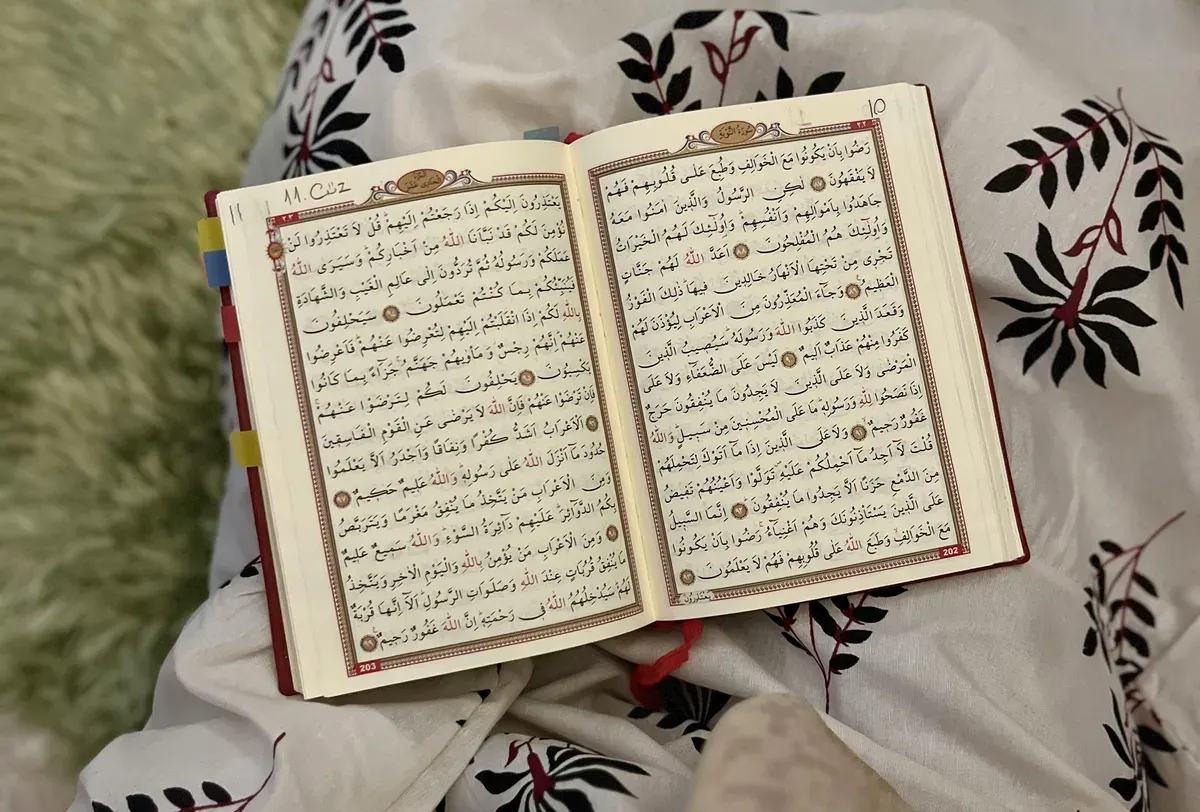 10
سُورَةُ التَّوْبَةِ
٢٠٢
رَضُوا بِاَنْ يَكُونُوا مَعَ الْخَوَالِفِ وَطُبِعَ عَلٰى قُلُوبِهِمْ فَهُمْ
لَا يَفْقَهُونَ ٨٧ لٰكِنِ الرَّسُولُ وَالَّذِينَ اٰمَنُوا مَعَهُ
جَاهَدُوا بِاَمْوَالِهِمْ وَاَنْفُسِهِمْ وَاُولٰٓئِكَ لَهُمُ الْخَيْرَاتُ
وَاُولٰٓئِكَ هُمُ الْمُفْلِحُونَ ٨٨ اَعَدَّ اللّٰهُ لَهُمْ جَنَّاتٍ
تَجْرِى مِنْ تَحْتِهَا الْاَنْهَارُ خَالِدِينَ فِيهَا ذٰلِكَ الْفَوْزُ
الْعَظِيمُ ٨٩ وَجَٓاءَ الْمُعَذِّرُونَ مِنَ الْاَعْرَابِ لِيُؤْذَنَ لَهُمْ
وَقَعَدَ الَّذِينَ كَذَبُوا اللّٰهَ وَرَسُولَهُ سَيُصِيبُ الَّذِينَ
كَفَرُوا مِنْهُمْ عَذَابٌ اَلِيمٌ ٩٠ لَيْسَ عَلَى الضُّعَفَٓاءِ وَلَا عَلَى
الْمَرْضٰى وَلَا عَلَى الَّذِينَ لَا يَجِدُونَ مَا يُنْفِقُونَ حَرَجٌ
اِذَا نَصَحُوا لِلّٰهِ وَرَسُولِهِ مَا عَلَى الْمُحْسِنِينَ مِنْ سَبِيلٍ وَاللّٰهُ
غَفُورٌ رَحِيمٌ ٩١ وَلَا عَلَى الَّذِينَ اِذَا مَٓا اَتَوْكَ لِتَحْمِلَهُمْ
قُلْتَ لَٓا اَجِدُ مَٓا اَحْمِلُكُمْ عَلَيْهِ تَوَلَّوْا وَاَعْيُنُهُمْ تَفِيضُ
مِنَ الدَّمْعِ حَزَنًا اَلَّا يَجِدُوا مَا يُنْفِقُونَ ٩٢ اِنَّمَا السَّبِيلُ
عَلَى الَّذِينَ يَسْتَأْذِنُونَكَ وَهُمْ اَغْنِيَٓاءُ رَضُوا بِاَنْ يَكُونُوا
مَعَ الْخَوَالِفِ وَطَبَعَ اللّٰهُ عَلٰى قُلُوبِهِمْ فَهُمْ لَا يَعْلَمُونَ ٩٣
202
يَعْتَذِرُونَ
11
11. Cüz
٢٠٣
يَعْتَذِرُونَ اِلَيْكُمْ اِذَا رَجَعْتُمْ اِلَيْهِمْ قُلْ لَا تَعْتَذِرُوا لَنْ
نُؤْمِنَ لَكُمْ قَدْ نَبَّاَنَا اللّٰهُ مِنْ اَخْبَارِكُمْ وَسَيَرَى اللّٰهُ
عَمَلَكُمْ وَرَسُولُهُ ثُمَّ تُرَدُّونَ اِلٰى عَالِمِ الْغَيْبِ وَالشَّهَادَةِ
فَيُنَبِّئُكُمْ بِمَا كُنْتُمْ تَعْمَلُونَ ٩٤ سَيَحْلِفُونَ
بِاللّٰهِ لَكُمْ اِذَا انْقَلَبْتُمْ اِلَيْهِمْ لِتُعْرِضُوا عَنْهُمْ فَاَعْرِضُوا
عَنْهُمْ اِنَّهُمْ رِجْسٌ وَمَأْوٰيهُمْ جَهَنَّمُ جَزَٓاءً بِمَا كَانُوا
يَكْسِبُونَ ٩٥ يَحْلِفُونَ لَكُمْ لِتَرْضَوْا عَنْهُمْ
فَاِنْ تَرْضَوْا عَنْهُمْ فَاِنَّ اللّٰهَ لَا يَرْضٰى عَنِ الْقَوْمِ الْفَاسِقِينَ
٩٦ اَلْاَعْرَابُ اَشَدُّ كُفْرًا وَنِفَاقًا وَاَجْدَرُ اَلَّا يَعْلَمُوا
حُدُودَ مَٓا اَنْزَلَ اللّٰهُ عَلٰى رَسُولِهِ وَاللّٰهُ عَلِيمٌ حَكِيمٌ ٩٧
وَمِنَ الْاَعْرَابِ مَنْ يَتَّخِذُ مَا يُنْفِقُ مَغْرَمًا وَيَتَرَبَّصُ
بِكُمُ الدَّوَٓائِرَ عَلَيْهِمْ دَٓائِرَةُ السَّوْءِ وَاللّٰهُ سَمِيعٌ عَلِيمٌ
٩٨ وَمِنَ الْاَعْرَابِ مَنْ يُؤْمِنُ بِاللّٰهِ وَالْيَوْمِ الْاٰخِرِ وَيَتَّخِذُ
مَا يُنْفِقُ قُرُبَاتٍ عِنْدَ اللّٰهِ وَصَلَوَاتِ الرَّسُولِ اَلَٓا اِنَّهَا قُرْبَةٌ
لَهُمْ سَيُدْخِلُهُمُ اللّٰهُ فِى رَحْمَتِهِ اِنَّ اللّٰهَ غَفُورٌ رَحِيمٌ ٩٩
203